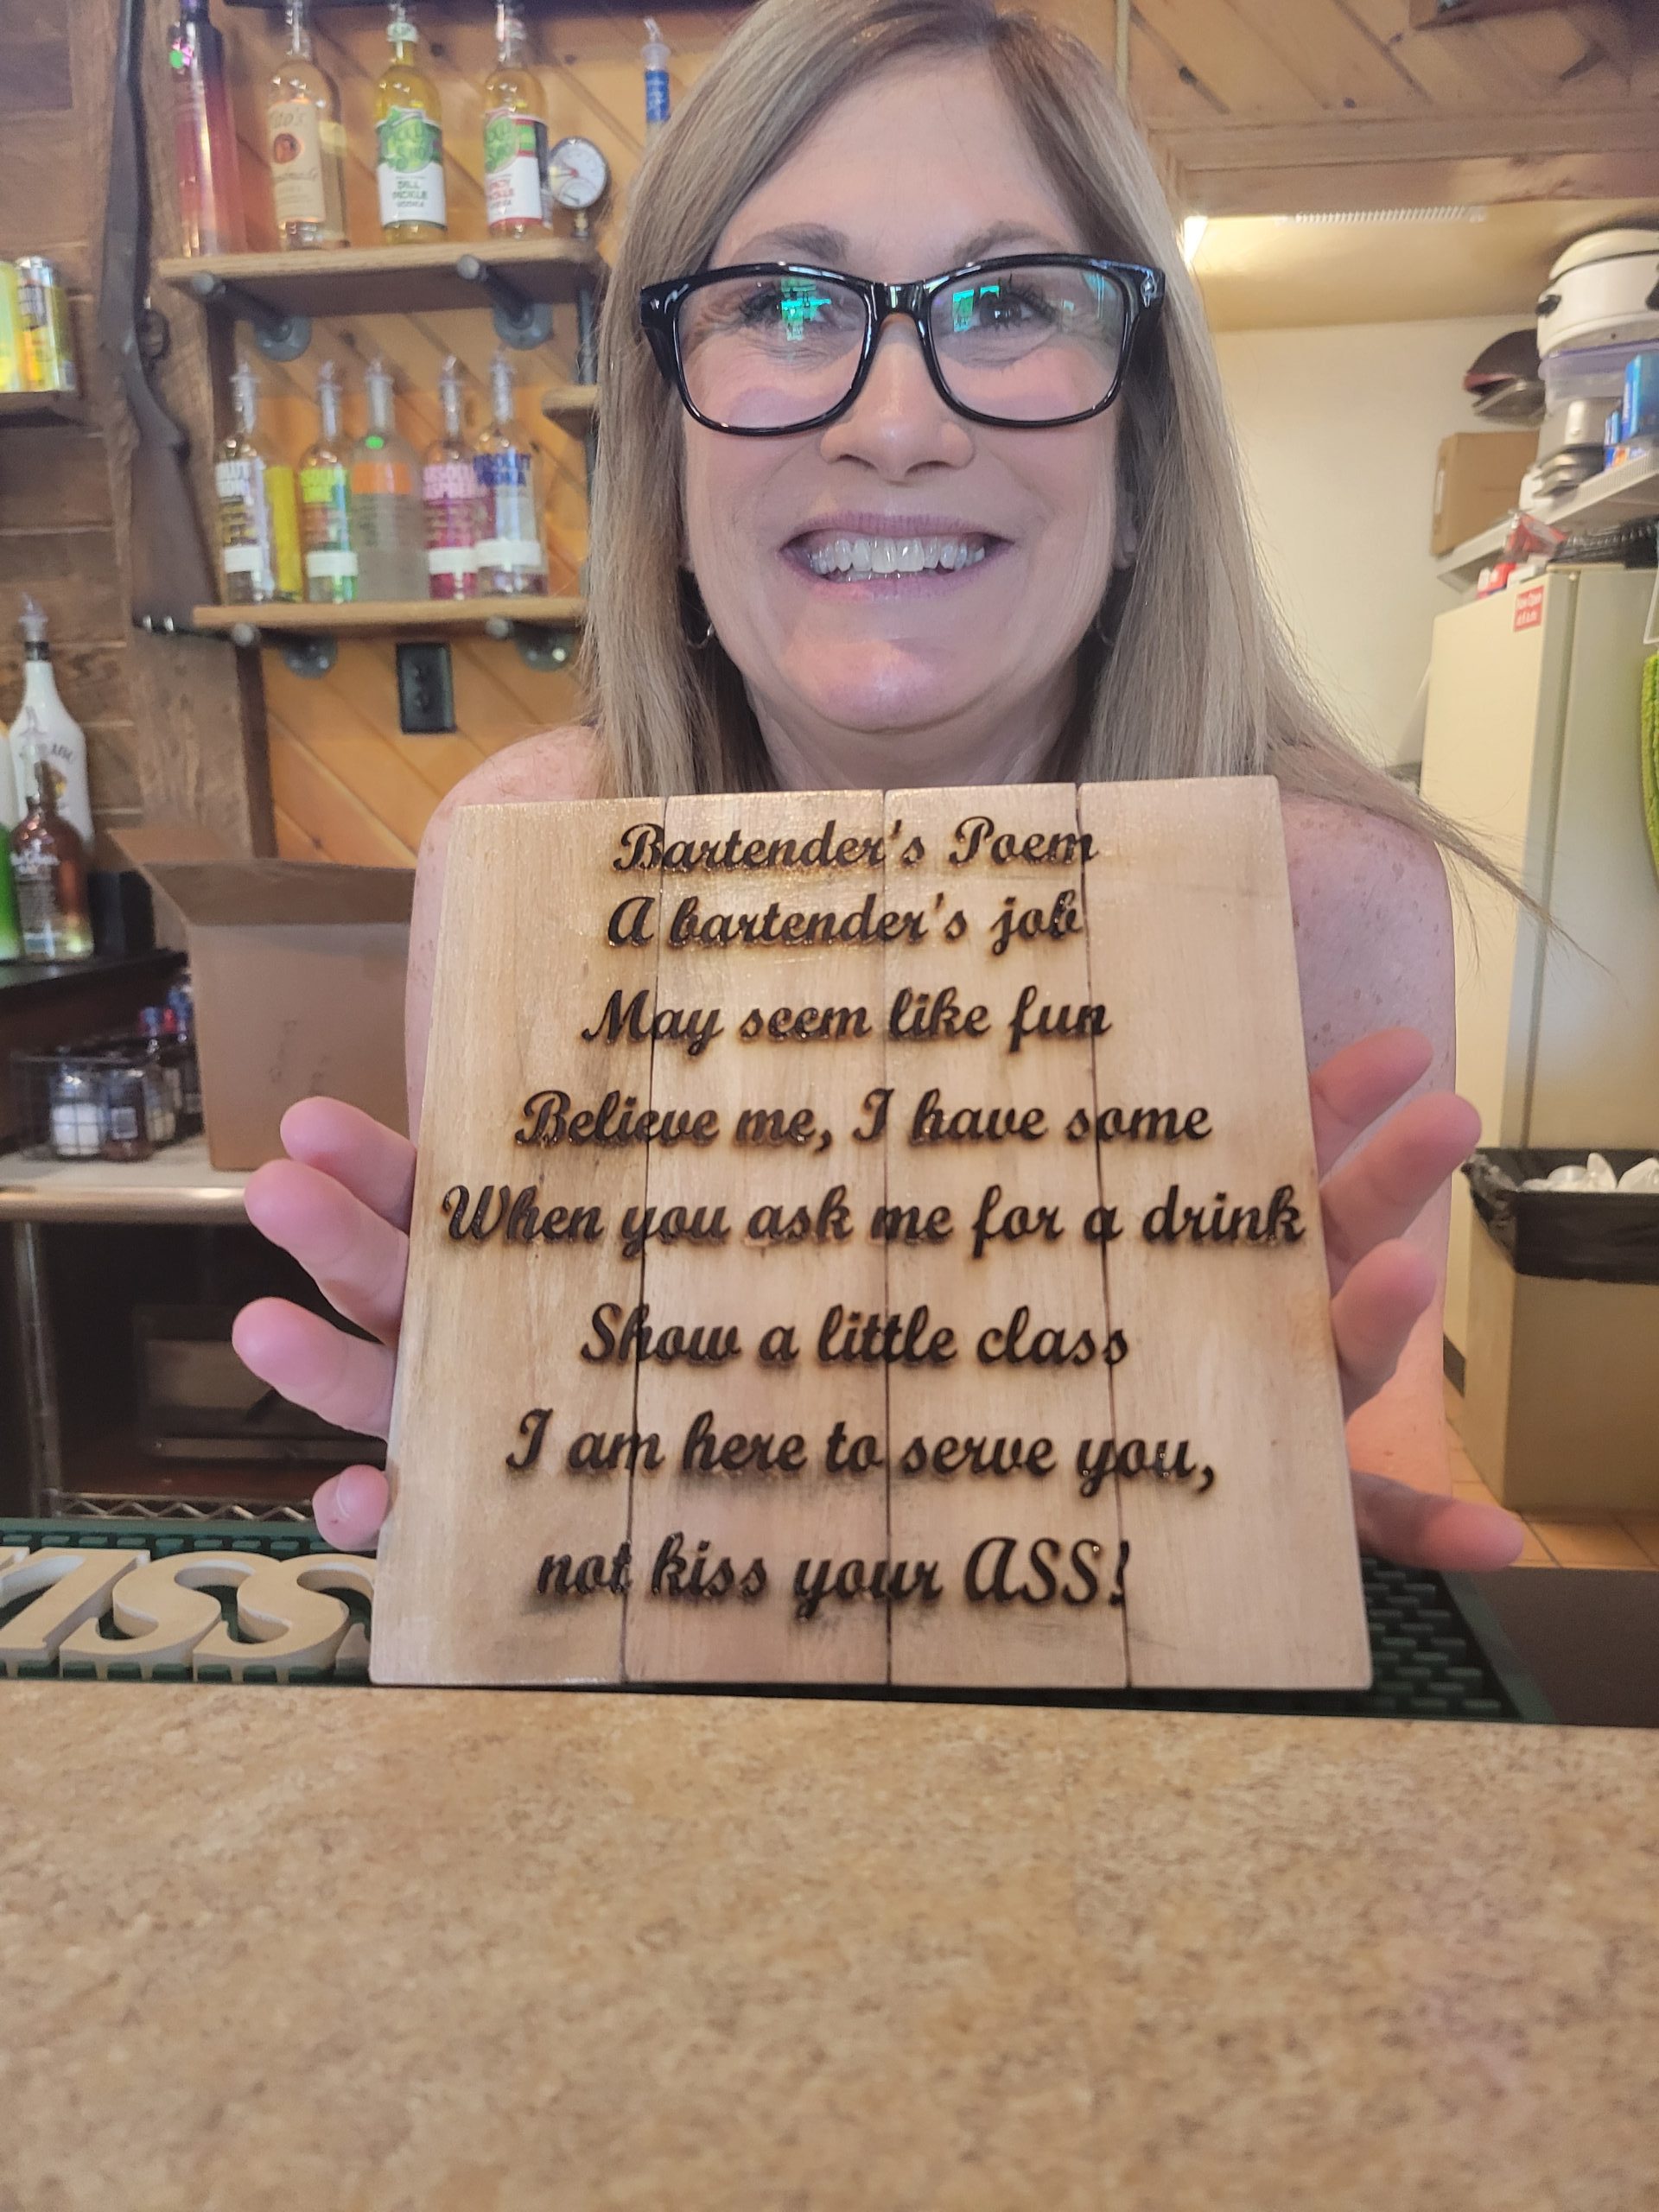 Tito's
DILL
PICKLE
VODKA
ABSOLUT
VODKA
Bartender's Poem
A bartender's job
May seem like fun
Believe me, I have some
When you ask me for a drink
Show a little class
I am here to serve you,
not kiss your ASS!